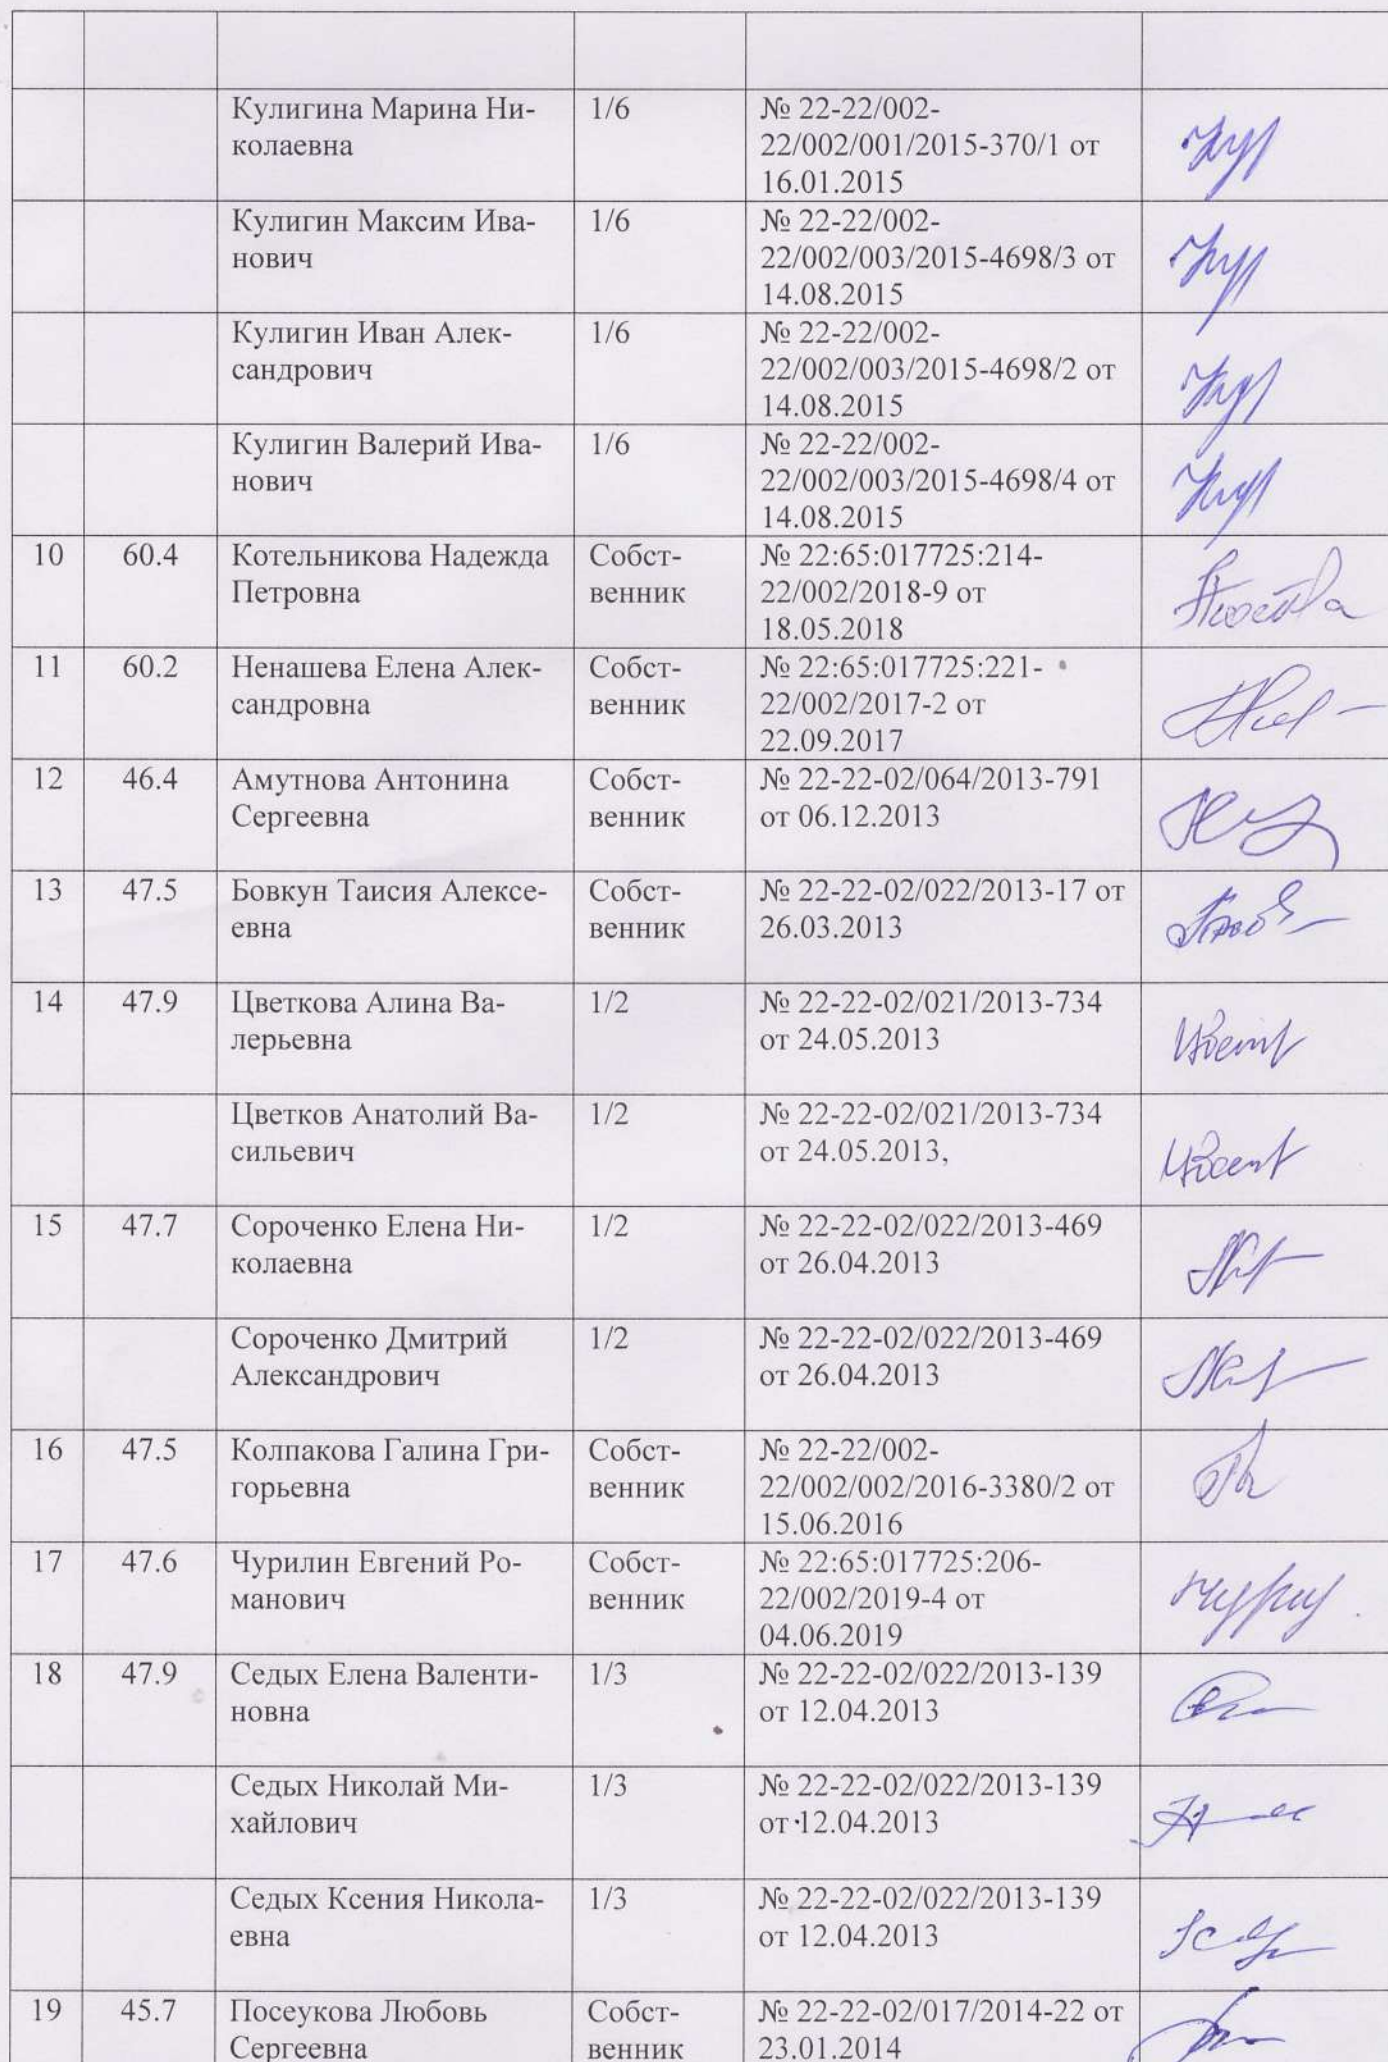 Кулигина Марина Ни-
колаевна
1/6
№ 22-22/002-
22/002/001/2015-370/1 от
16.01.2015
Кулигин Максим Ива-
нович
1/6
№ 22-22/002-
22/002/003/2015-4698/3 от
14.08.2015
Кулигин Иван Алек-
сандрович
1/6
№ 22-22/002-
22/002/003/2015-4698/2 от
14.08.2015
Кулигин Валерий Ива-
нович
1/6
№ 22-22/002-
22/002/003/2015-4698/4 от
14.08.2015
10
60.4
Котельникова Надежда
Петровна
Собст-
венник
№ 22:65:017725:214-
22/002/2018-9 от
18.05.2018
11
60.2
Ненашева Елена Алек-
сандровна
Собст-
венник
№ 22:65:017725:221-
22/002/2017-2 от
22.09.2017
12
46.4
Амутнова Антонина
Сергеевна
Собст-
венник
№ 22-22-02/064/2013-791
от 06.12.2013
13
47.5
Бовкун Таисия Алексе-
евна
Собст-
венник
№ 22-22-02/022/2013-17 от
26.03.2013
14
47.9
Цветкова Алина Ва-
лерьевна
1/2
№ 22-22-02/021/2013-734
от 24.05.2013
Цветков Анатолий Ва-
сильевич
1/2
№ 22-22-02/021/2013-734
от 24.05.2013,
15
47.7
Сороченко Елена Ни-
колаевна
1/2
№ 22-22-02/022/2013-469
от 26.04.2013
Сороченко Дмитрий
Александрович
1/2
№ 22-22-02/022/2013-469
от 26.04.2013
16
47.5
Колпакова Галина Гри-
горьевна
Собст-
венник
№ 22-22/002-
22/002/002/2016-3380/2 от
15.06.2016
17
47.6
Чурилин Евгений Ро-
манович
Собст-
венник
№ 22:65:017725:206-
22/002/2019-4 от
04.06.2019
18
47.9
Седых Елена Валенти-
новна
1/3
№ 22-22-02/022/2013-139
от 12.04.2013
Седых Николай Ми-
хайлович
1/3
№ 22-22-02/022/2013-139
от 12.04.2013
Седых Ксения Никола-
евна
1/3
№ 22-22-02/022/2013-139
от 12.04.2013
19
45.7
Посеукова Любовь
Сергеевна
Собст-
венник
№ 22-22-02/017/2014-22 от
23.01.2014